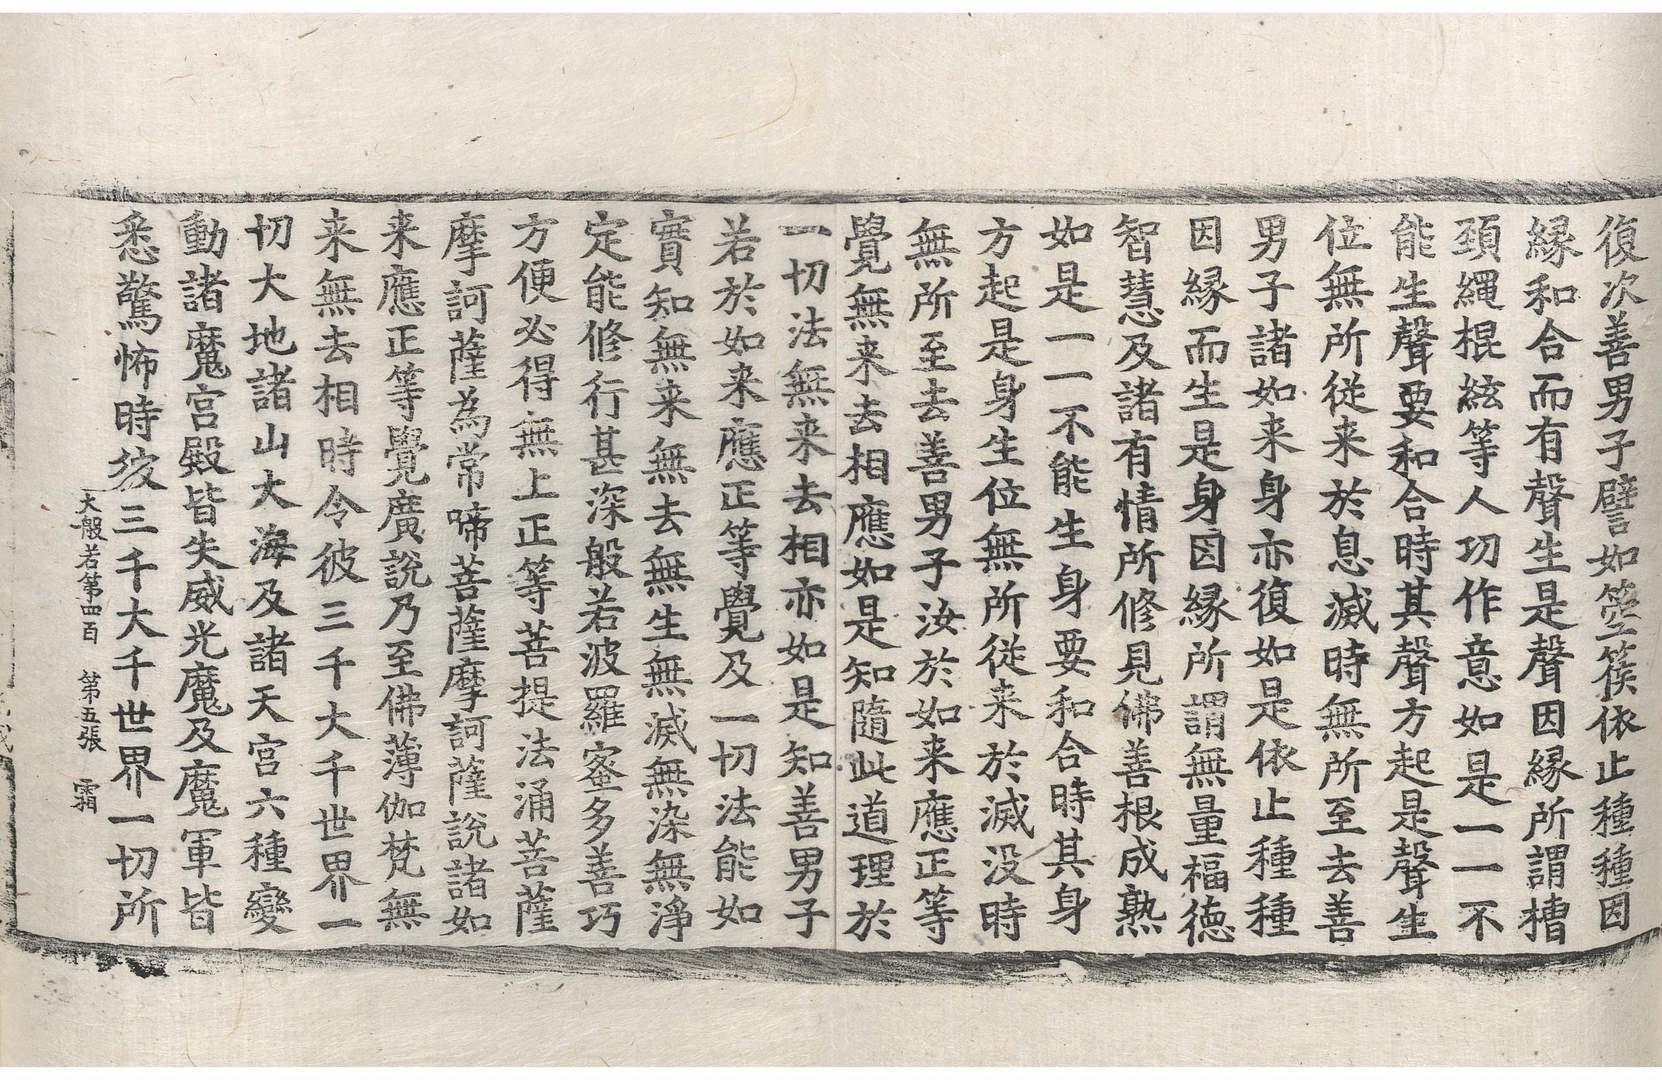 復次善男子譬如箜篌依止種種因
縁和合而有聲生是聲因縁所謂槽
頚繩棍絃等人功作意如是一一不
能生聲要和合時其聲方起是聲生
位無所従来於息滅時無所至去善
男子諸如来身亦復如是依止種種
因縁而生是身因縁所謂無量福徳
智慧及諸有情所修見佛善根成熟
如是一一不能生身要和合時其身
方起是身生位無所従来於滅没時
無所至去善男子汝於如来應正等
覺無来去相應如是知随此道理於
一切法無来去相亦如是知善男子
若於如来應正等覺及一切法能如
實知無来無去無生無滅無染無淨
定能修行甚深般若波羅蜜多善巧
方便必得無上正等菩提法涌菩薩
摩訶薩為常啼菩薩摩訶薩説諸如
来應正等覺廣説乃至佛薄伽梵無
来無去相時令彼三千大千世界一
切大地諸山大海及諸天宮六種變
動諸魔宮殿皆失威光魔及魔軍皆
悉驚怖時彼三千大千世界一切所
大般若第四百　第五張　霜